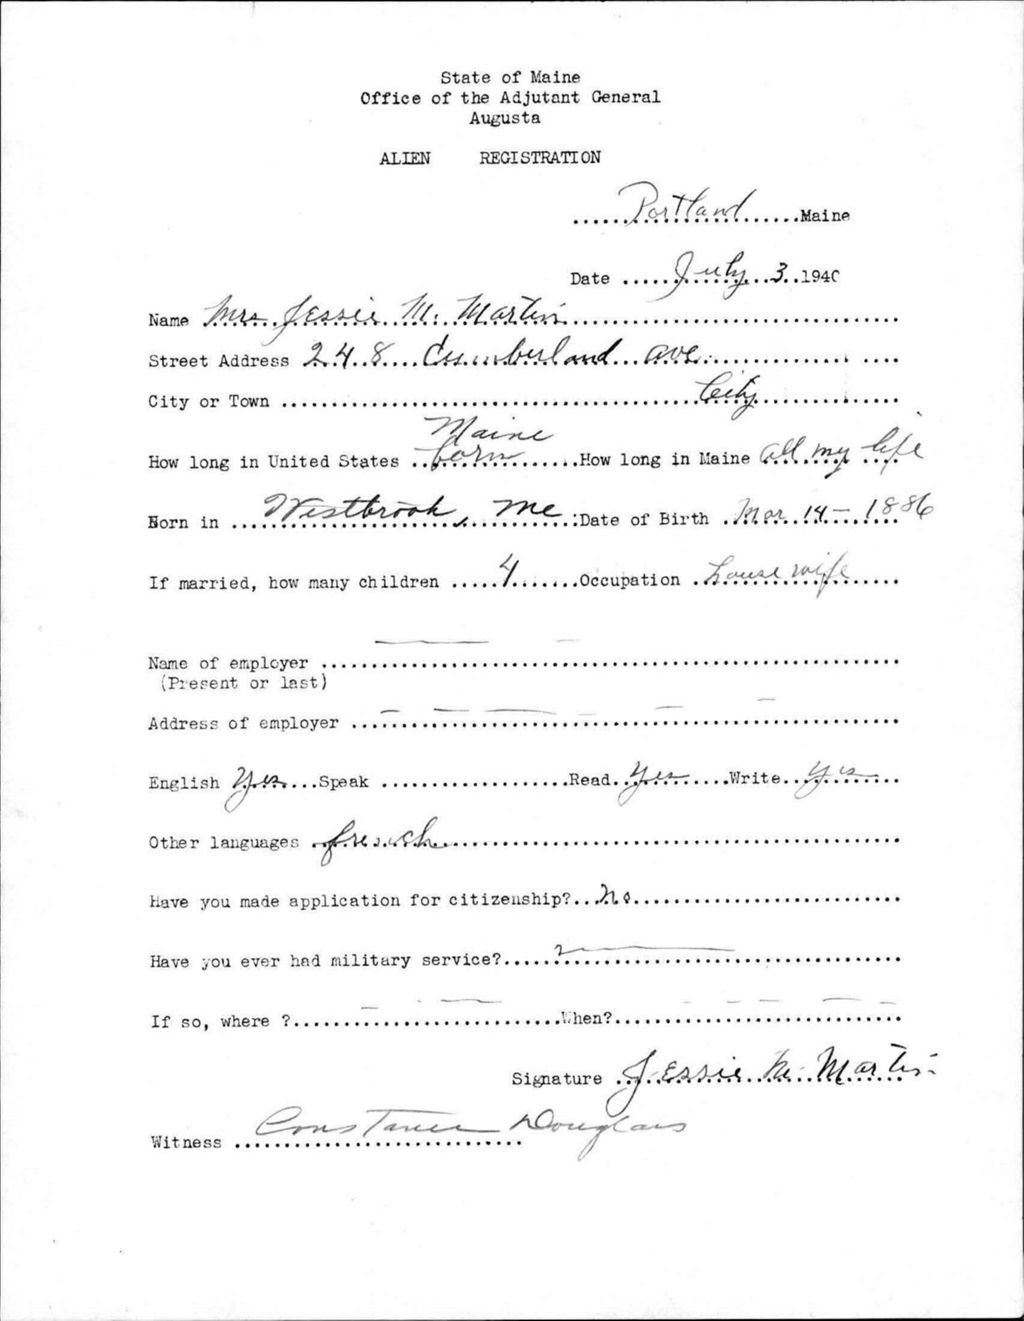 State of Maine
Office of the Adjutant General
Augusta
ALIEN REGISTRATION
......Portland......Maine
Date .....July 3..1940
Name Mrs Jessie M. Martin..............................
Street Address 248 Cumberland ave..................
City or Town ........................................City..............
Maine
How long in United States ..born...........How long in Maine all my life
Born in ....Westbrook, Me.:Date of Birth .Mar. 14 - 1886
If married, how many children .....4.......Occupation .house wife.....
Name of employer ......................................................
(Present or last)
Address of employer ....................................................
English Yes...Speak ..................Read..Yes....Write..Yes...
Other languages .french...........................................
Have you made application for citizenship?...No..........................
Have you ever had military service?......................................
If so, where ?..........................When?............................
Signature .Jessie M. Martin
Witness Constance Douglass